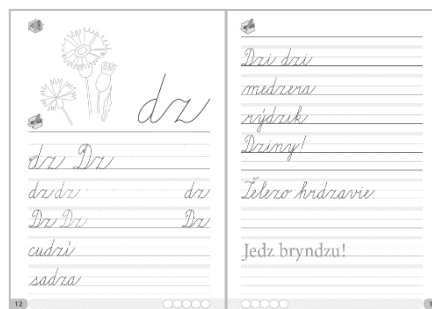 dz
dz Dz
dz dz dz
Dz Dz Dz
cudzí
sadza
12
Dzi dzi
medzera
rýdzik
Dziny!
Železo hrdzavie.
Jedz bryndzu!